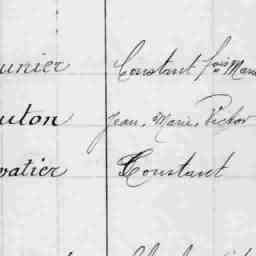 unier Constant fois Marie
uton Jean, Marie, Victor
vatier Constant